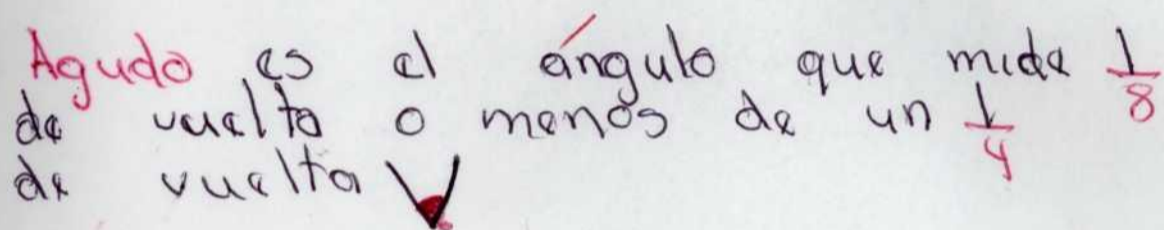 Agudo es el ángulo que mide 1/8
de vuelta o menos de un 1/4
de vuelta